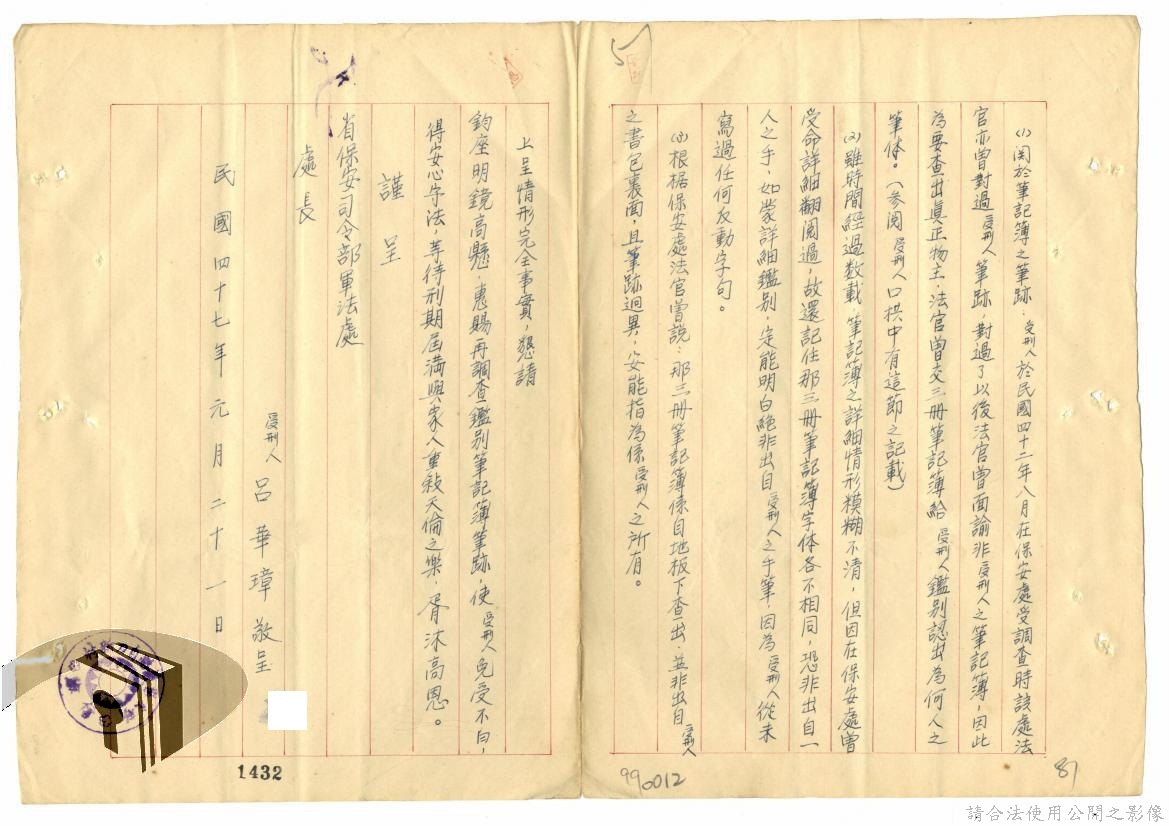 5
(1)関於筆記簿之筆跡：受刑人於民國四十二年八月在保安處受調查時該處法
官亦曾對過受刑人筆跡，對過了以後法官曾面諭非受刑人之筆記簿，因此
為要查出眞正物主，法官曾交三冊筆記簿給受刑人鑑別認出為何人之
筆体。（參閱受刑人口供中有這節之記載）
(2)雖時間經過数載，筆記簿之詳細情形模糊不清，但因在保安處曾
受命詳細翻閱過，故還記住那三冊筆記簿字体各不相同，恐非出自一
人之手，如蒙詳細鑑別，定能明白絕非出自受刑人之手筆，因為受刑人從未
寫過任何反動字句。
(3)根据保安處法官曾說：那三冊筆記簿係自地板下查出，並非出自受刑人
之書包裏面，且筆跡迥異，安能指為係受刑人之所有。
上呈情形完全事實，懇請
鈞座明鏡高懸，惠賜再調查鑑別筆記簿筆跡，使受刑人免受不白，
得安心守法，等待刑期屆滿與家人重敍天倫之樂，胥沐高恩。
謹呈
省保安司令部軍法處
處長
受刑人 呂華璋 敬呈
民國四十七年元月二十一日
1432
990012
87
請合法使用公開之影像